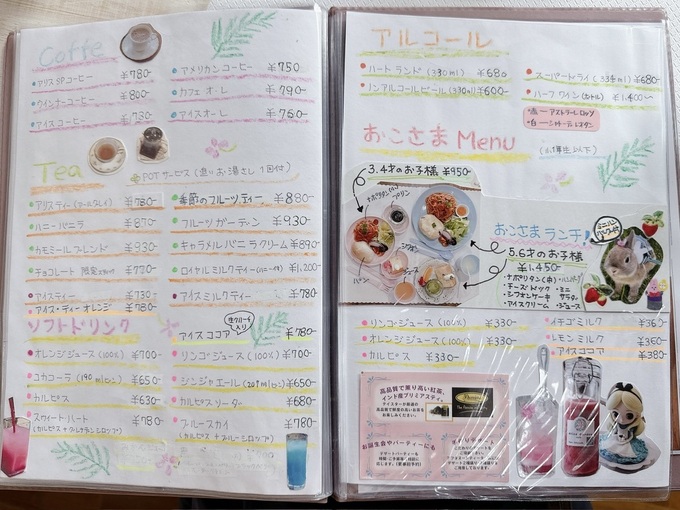 Coffe
アリスSPコーヒー ￥780-
ウインナーコーヒー ￥800-
アイスコーヒー ￥730-
アメリカンコーヒー ￥750
カフェオーレ ￥790-
アイスオーレ ￥750-
Tea
POTサービス (濃いお湯さし1回付)
アリスティー ￥780-
ハニーバニラ ￥870-
カモミールブレンド ￥930-
チョコレート ￥720-
アイスティー ￥730-
アイス・ティーオレンジ ￥780
季節のフルーツティー ￥880-
フルーツガーデン ￥930-
キャラメルバニラクリーム ￥890
ロイヤルミルクティー ￥1,200
アイスミルクティー ￥780
ソフトドリンク
オレンジジュース(100%) ￥700-
コカコーラ(190ml) ￥650
カルピス ￥630
スウィートハート ￥780
(カルピス+グレナデンシロップ)
生クリーム入り
アイスココア ￥780-
リンゴジュース(100%) ￥700-
ジンジャエール(209ml) ￥650-
カルピスソーダー ￥680-
ブルースカイ ￥780
(カルピス+ブルーシロップ)
アルコール
ハートランド(330ml) ￥680
ノンアルコールビール(330ml) ￥600-
スーパードライ(334ml) ￥680-
ハーフワイン ￥1,400~
おこさま Menu
3.4才のお子様 ￥950
ナポリタン
プリン
パン
おこさまランチ!
5.6才のお子様
￥1,450-
・ナポリタン(中)・ハンバーグ
・チーズドック・ミニ
・シフォンケーキ サラダ
・アイスクリーム・ジュース
リンゴジュース(100%) ￥330-
オレンジジュース(100%) ￥330-
カルピス ￥330-
イチゴミルク ￥360
レモンミルク ￥360-
アイスココア ￥380
高品質で薫り高い紅茶、
インド産プリミアスティ。
お誕生会やパーティーにも